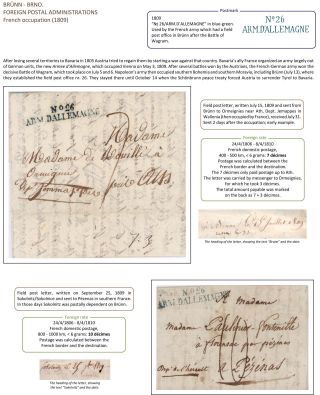 BRÜNN - BRNO.
FOREIGN POSTAL ADMINISTRATIONS
French occupation (1809)
Postmark
1809
"No 26/ARM D'ALLEMAGNE" in blue-green
Used by the French army which had a field
post office in Brünn after the Battle of
Wagram.
No 26
ARM.D'ALLEMAGNE
After losing several territories to Bavaria in 1805 Austria tried to regain them by starting a war against that country. Bavaria's ally France organized an army largely out
of German units, the new Armee d'Allemagne, which occupied Vienna on May 3, 1809. After several battles won by the Austrians, the French-German army won the
decisive Battle of Wagram, which took place on July 5 and 6. Napoleon's army then occupied southern Bohemia and southern Moravia, including Brünn (July 13), where
they established the field post office nr. 26. They stayed there until October 14 when the Schönbrunn peace treaty forced Austria to surrender Tyrol to Bavaria.
No 26
ARM.D'ALLEMAGNE
Madame
Madame de
7.3
Field post letter, written July 15, 1809 and sent from
Brünn to Ormeignies near Ath, Dept. Jemappes in
Wallonia (then occupied by France), received July 31.
Sent 2 days after the occupation; early example.
Foreign rate
24/4/1806 - 8/4/1810
French domestic postage,
400 - 500 km, < 6 grams: 7 décimes
Postage was calculated between the
French border and the destination.
The 7 décimes only paid postage up to Ath.
The letter was carried by messenger to Ormeignies,
for which he took 3 décimes.
The total amount payable was marked
on the back as 7 + 3 décimes.
The heading of the letter, showing the text "Brünn" and the date.
Field post letter, written on September 25, 1809 in
Sokolnitz/Sokolnice and sent to Pézenas in southern France.
In those days Sokolnitz was postally dependent on Brünn.
Foreign rate
24/4/1806 - 8/4/1810
French domestic postage,
800 - 1000 km, < 6 grams: 10 décimes
Postage was calculated between the
French border and the destination.
The heading of the letter, showing
the text "Sokolnitz" and the date.
No 26
ARM.D'ALLEMAGNE
A Madame
Madame
à Pézénas